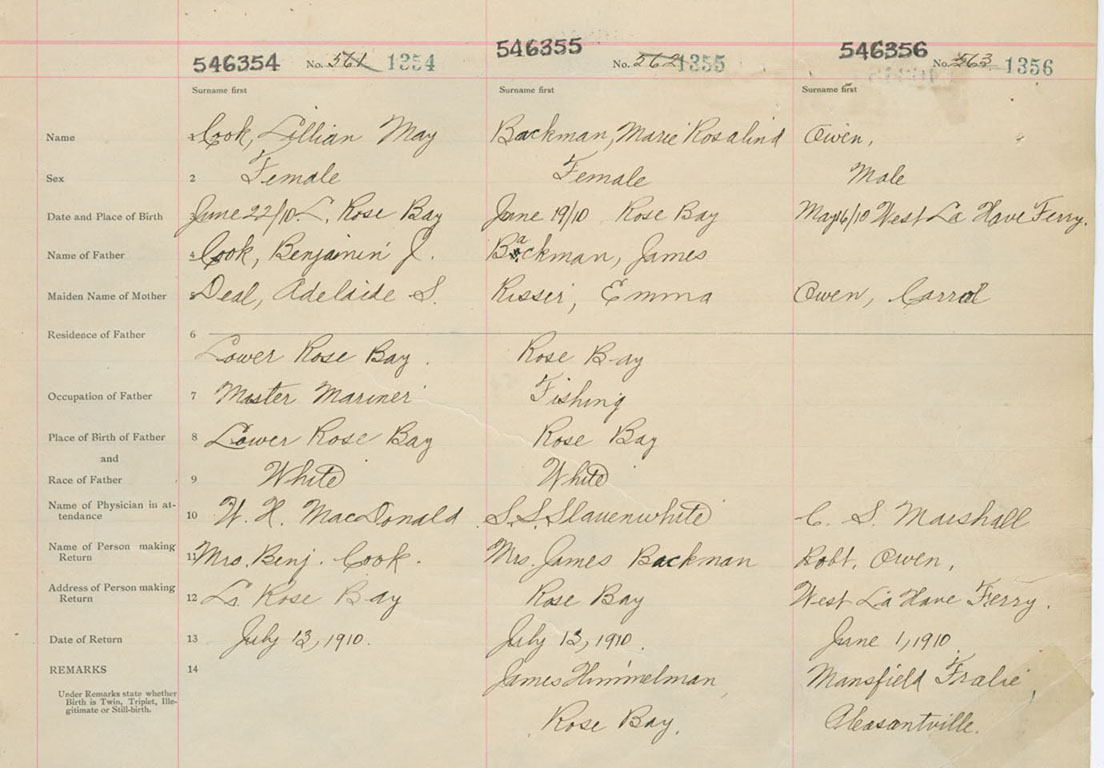 546354 No. 561 1354 546355 No. 562 1355 546356 No. 563 1356
Surname first Surname first Surname first
Name 1 Cook, Lillian May Backman, Marie Rosalind Owen,
Sex 2 Female Female Male
Date and Place of Birth 3 June 22/10 L. Rose Bay June 19/10 Rose Bay May 16/10 West La Have Ferry.
Name of Father 4 Cook, Benjamin J. Backman, James
Maiden Name of Mother 5 Deal, Adelaide S. Risser, Emma Owen, Carrol
Residence of Father 6
Lower Rose Bay. Rose Bay
Occupation of Father 7 Master Mariner Fishing
Place of Birth of Father 8 Lower Rose Bay Rose Bay
and
Race of Father 9 White White
Name of Physician in at-
tendance 10 W. H. MacDonald S. S. Slauenwhite C. S. Marshall
Name of Person making
Return 11 Mrs. Benj. Cook. Mrs. James Backman Robt. Owen,
Address of Person making
Return 12 Lr Rose Bay Rose Bay West La Have Ferry.
Date of Return 13 July 13, 1910. July 13, 1910. June 1, 1910
REMARKS 14 James Himmelman Mansfield Fralic,
Under Remarks state whether
Birth is Twin, Triplet, Ille-
gitimate or Still-birth.
Rose Bay. Pleasantville.